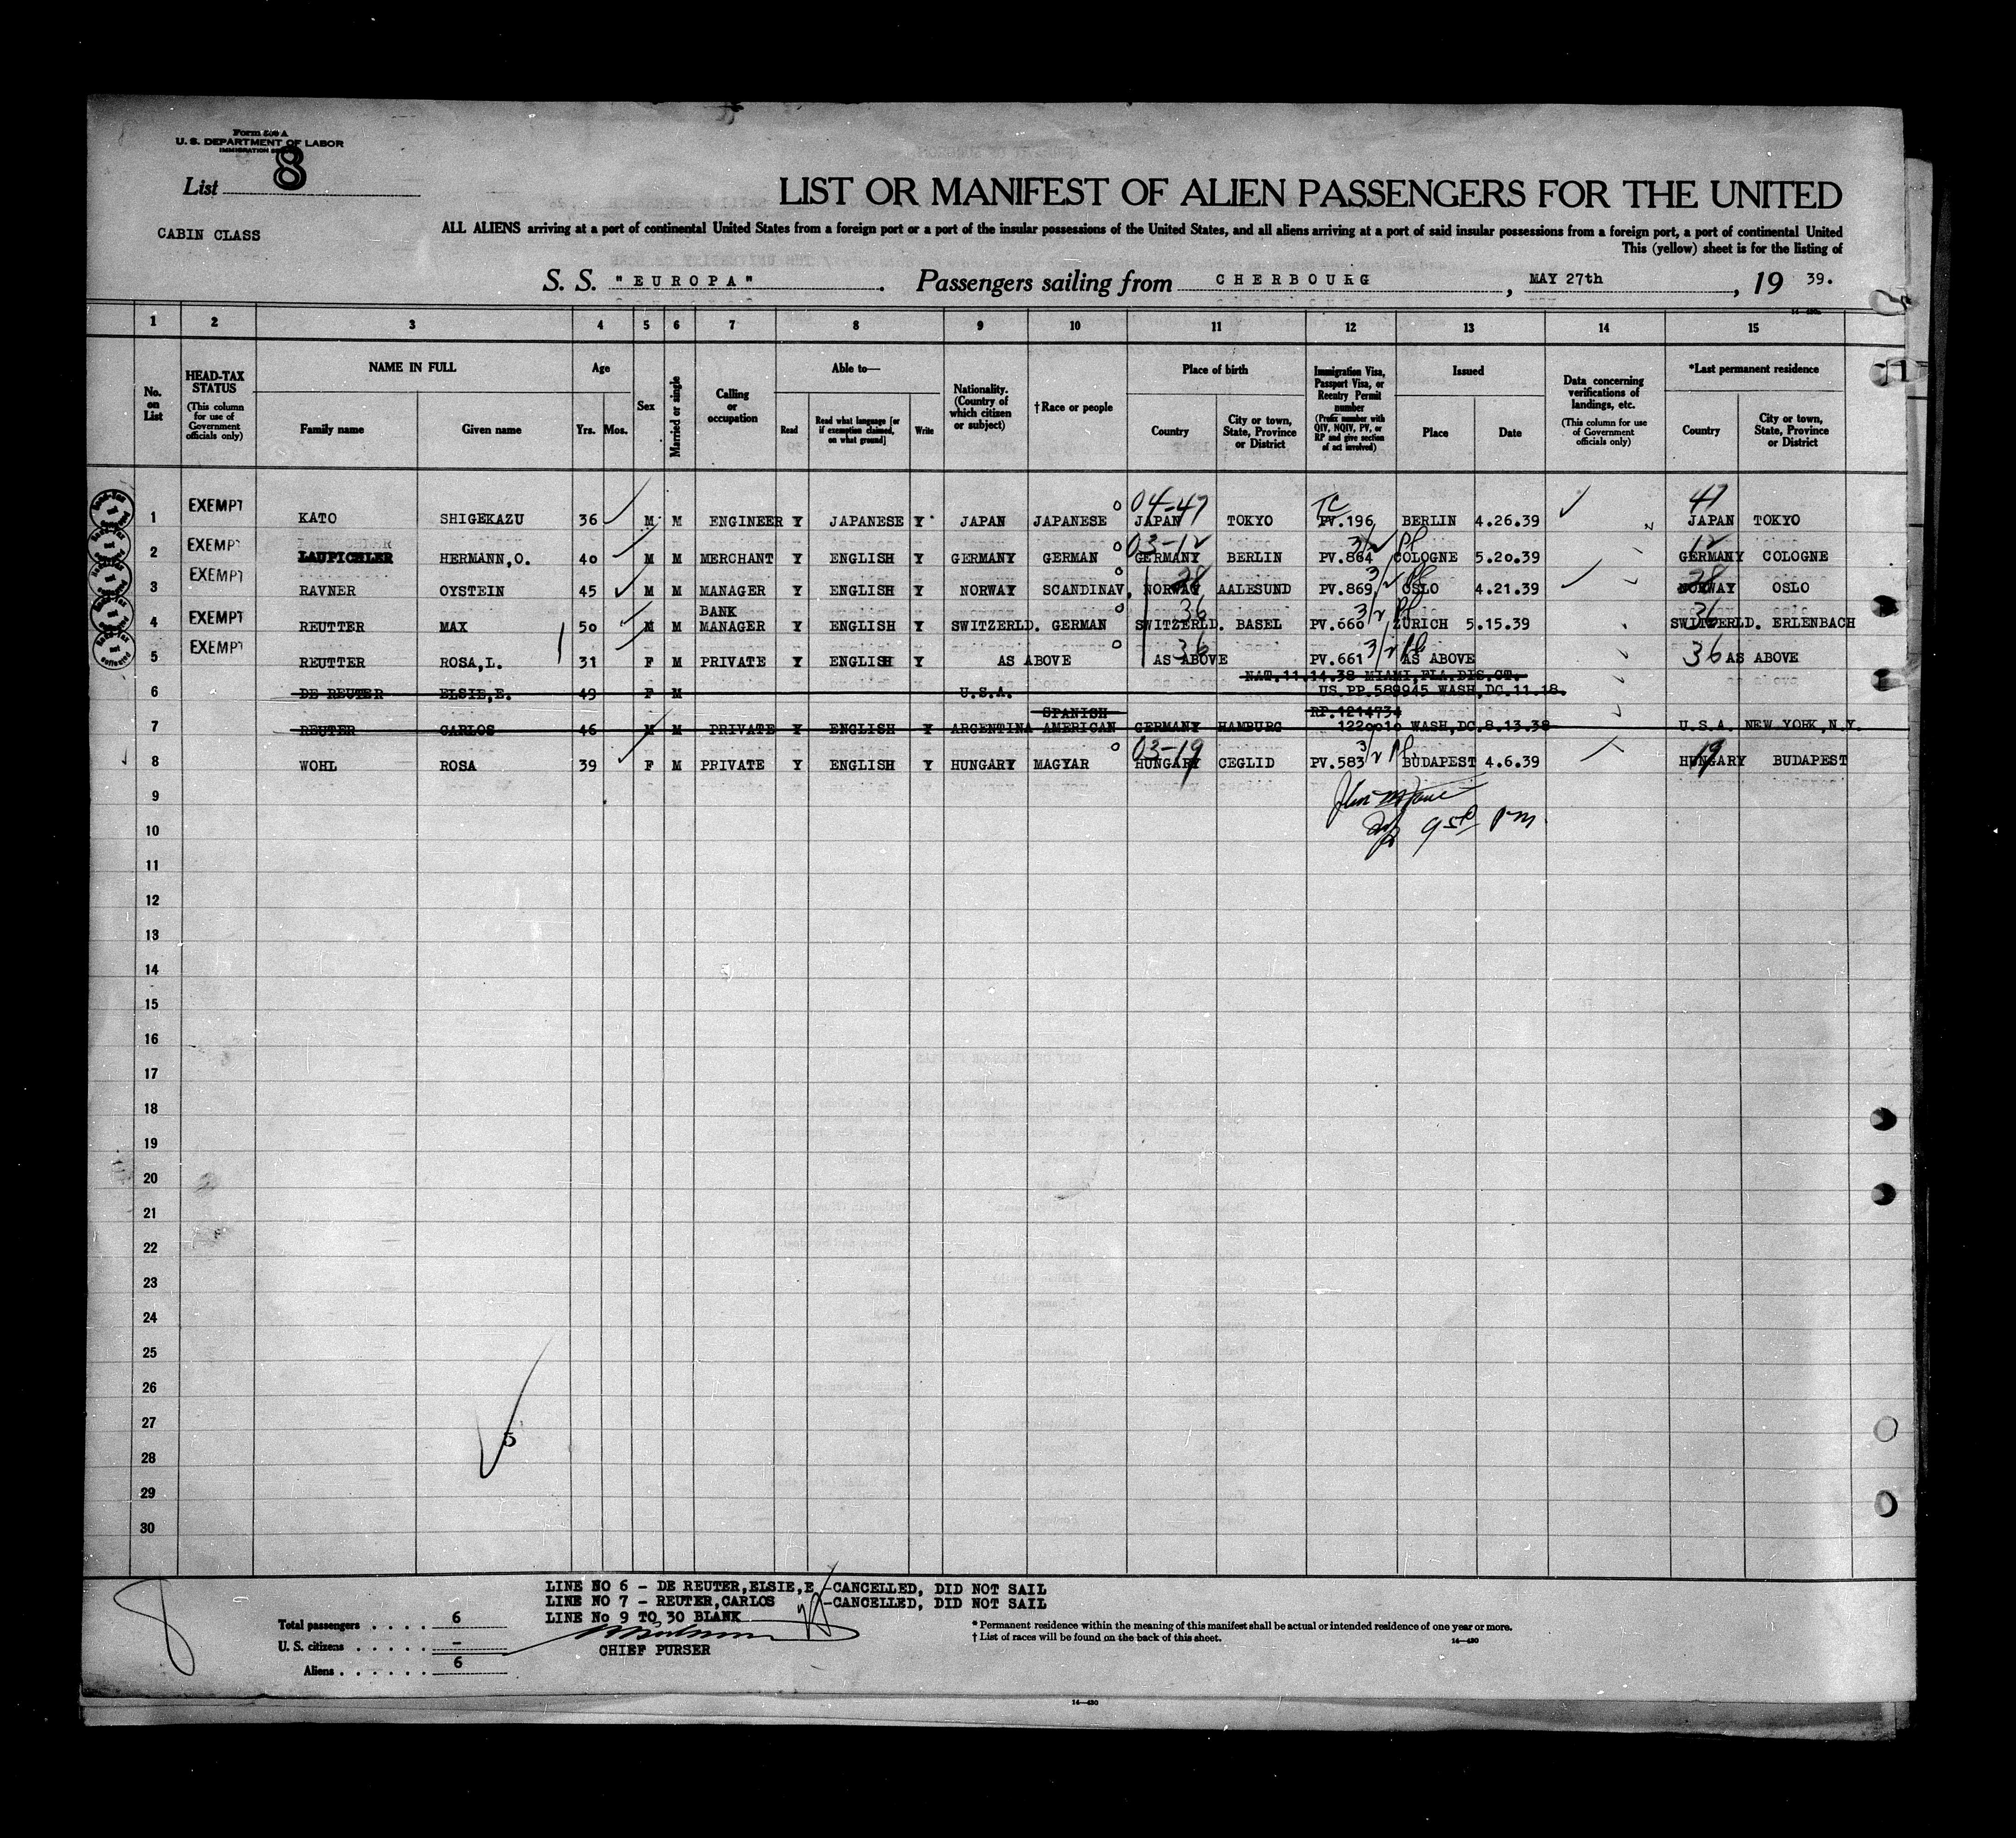 Form 500 A
U. S. DEPARTMENT OF LABOR
List 8
LIST OR MANIFEST OF ALIEN PASSENGERS FOR THE UNITED
CABIN CLASS
ALL ALIENS arriving at a port of continental United States from a foreign port or a port of the insular possessions of the United States, and all aliens arriving at a port of said insular possessions from a foreign port, a port of continental United
This (yellow) sheet is for the listing of
S. S. "EUROPA". Passengers sailing from CHERBOURG, MAY 27th, 19 39.
1 2 3 4 5 6 7 8 9 10 11 12 13 14 15
No. on List
HEAD-TAX STATUS (This column for use of Government officials only)
NAME IN FULL Family name Given name
Age Yrs. Mos.
Sex
Married or single
Calling or occupation
Able to— Read Read what language [or if exemption claimed, on what ground] Write
Nationality. (Country of which citizen or subject)
† Race or people
Place of birth Country City or town, State, Province or District
Immigration Visa, Passport Visa, or Reentry Permit number (Prefix number with QIV, NQIV, PV, or RP and give section of act involved)
Issued Place Date
Data concerning verifications of landings, etc. (This column for use of Government officials only)
*Last permanent residence Country City or town, State, Province or District
04-47 TC 47
1 EXEMPT KATO SHIGEKAZU 36 M M ENGINEER Y JAPANESE Y JAPAN JAPANESE JAPAN TOKYO PV.196 BERLIN 4.26.39 JAPAN TOKYO
03-12 3/2 12
2 EXEMPT LAUPICHLER HERMANN,O. 40 M M MERCHANT Y ENGLISH Y GERMANY GERMAN GERMANY BERLIN PV.864 COLOGNE 5.20.39 GERMANY COLOGNE
28 3/2 28
3 EXEMPT RAVNER OYSTEIN 45 M M MANAGER Y ENGLISH Y NORWAY SCANDINAV. NORWAY AALESUND PV.869 OSLO 4.21.39 NORWAY OSLO
BANK 36 3/2 36
4 EXEMPT REUTTER MAX 50 M M MANAGER Y ENGLISH Y SWITZERLD. GERMAN SWITZERLD. BASEL PV.660 ZURICH 5.15.39 SWITZERLD. ERLENBACH
36 3/2 36
5 EXEMPT REUTTER ROSA,L. 31 F M PRIVATE Y ENGLISH Y AS ABOVE AS ABOVE PV.661 AS ABOVE AS ABOVE
NAT.11.14.38 MIAMI,FLA.DIS.CT.
6 DE REUTER ELSIE,E. 49 F M U.S.A. US.PP.589945 WASH,DC.11.18.
SPANISH RP.1214734
7 REUTER CARLOS 46 M M PRIVATE Y ENGLISH Y ARGENTINA AMERICAN GERMANY HAMBURG 1220010 WASH,DC.8.13.38 U.S.A. NEW YORK,N.Y.
03-19 3/2 19
8 WOHL ROSA 39 F M PRIVATE Y ENGLISH Y HUNGARY MAGYAR HUNGARY CEGLID PV.583 BUDAPEST 4.6.39 HUNGARY BUDAPEST
9
10
11
12
13
14
15
16
17
18
19
20
21
22
23
24
25
26
27
28
29
30
5
LINE NO 6 - DE REUTER,ELSIE,E -CANCELLED, DID NOT SAIL
LINE NO 7 - REUTER,CARLOS -CANCELLED, DID NOT SAIL
LINE No 9 TO 30 BLANK
CHIEF PURSER
Total passengers . . . . 6
U. S. citizens . . . . . -
Aliens . . . . . . 6
* Permanent residence within the meaning of this manifest shall be actual or intended residence of one year or more.
† List of races will be found on the back of this sheet.
14—430
14—430